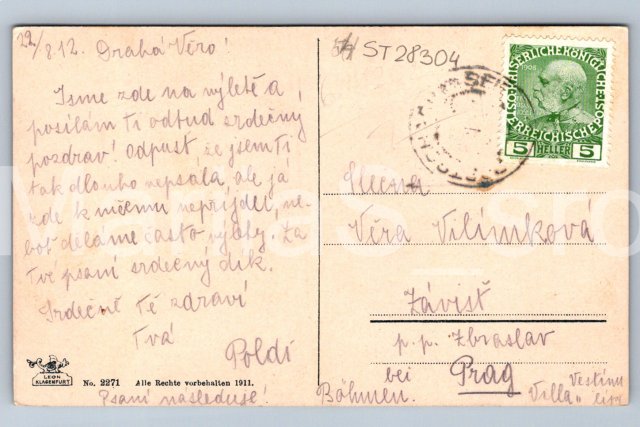 29/8 12. Drahá Věro!
Jsme zde na výletě a
posílám Ti odtud srdečný
pozdrav! Odpusť, že jsem Ti
tak dlouho nepsala, ale já
zde k ničemu nepřijdu, ne-
boť děláme často výlety. Za
Tvé psaní srdečný dík.
Srdečně Tě zdraví
Tvá
Poldi
LEON
KLAGENFURT
No. 2271 Alle Rechte vorbehalten 1911.
Psaní následuje!
ST28304
KAISERLICHEKÖNIGLICHE
1908
ÖSTERREICHISCHE
5 HELLER 5
Slečna
Věra Vilímková
Závist
p. p. Zbraslav
bei Prag
Böhmen.
Villa